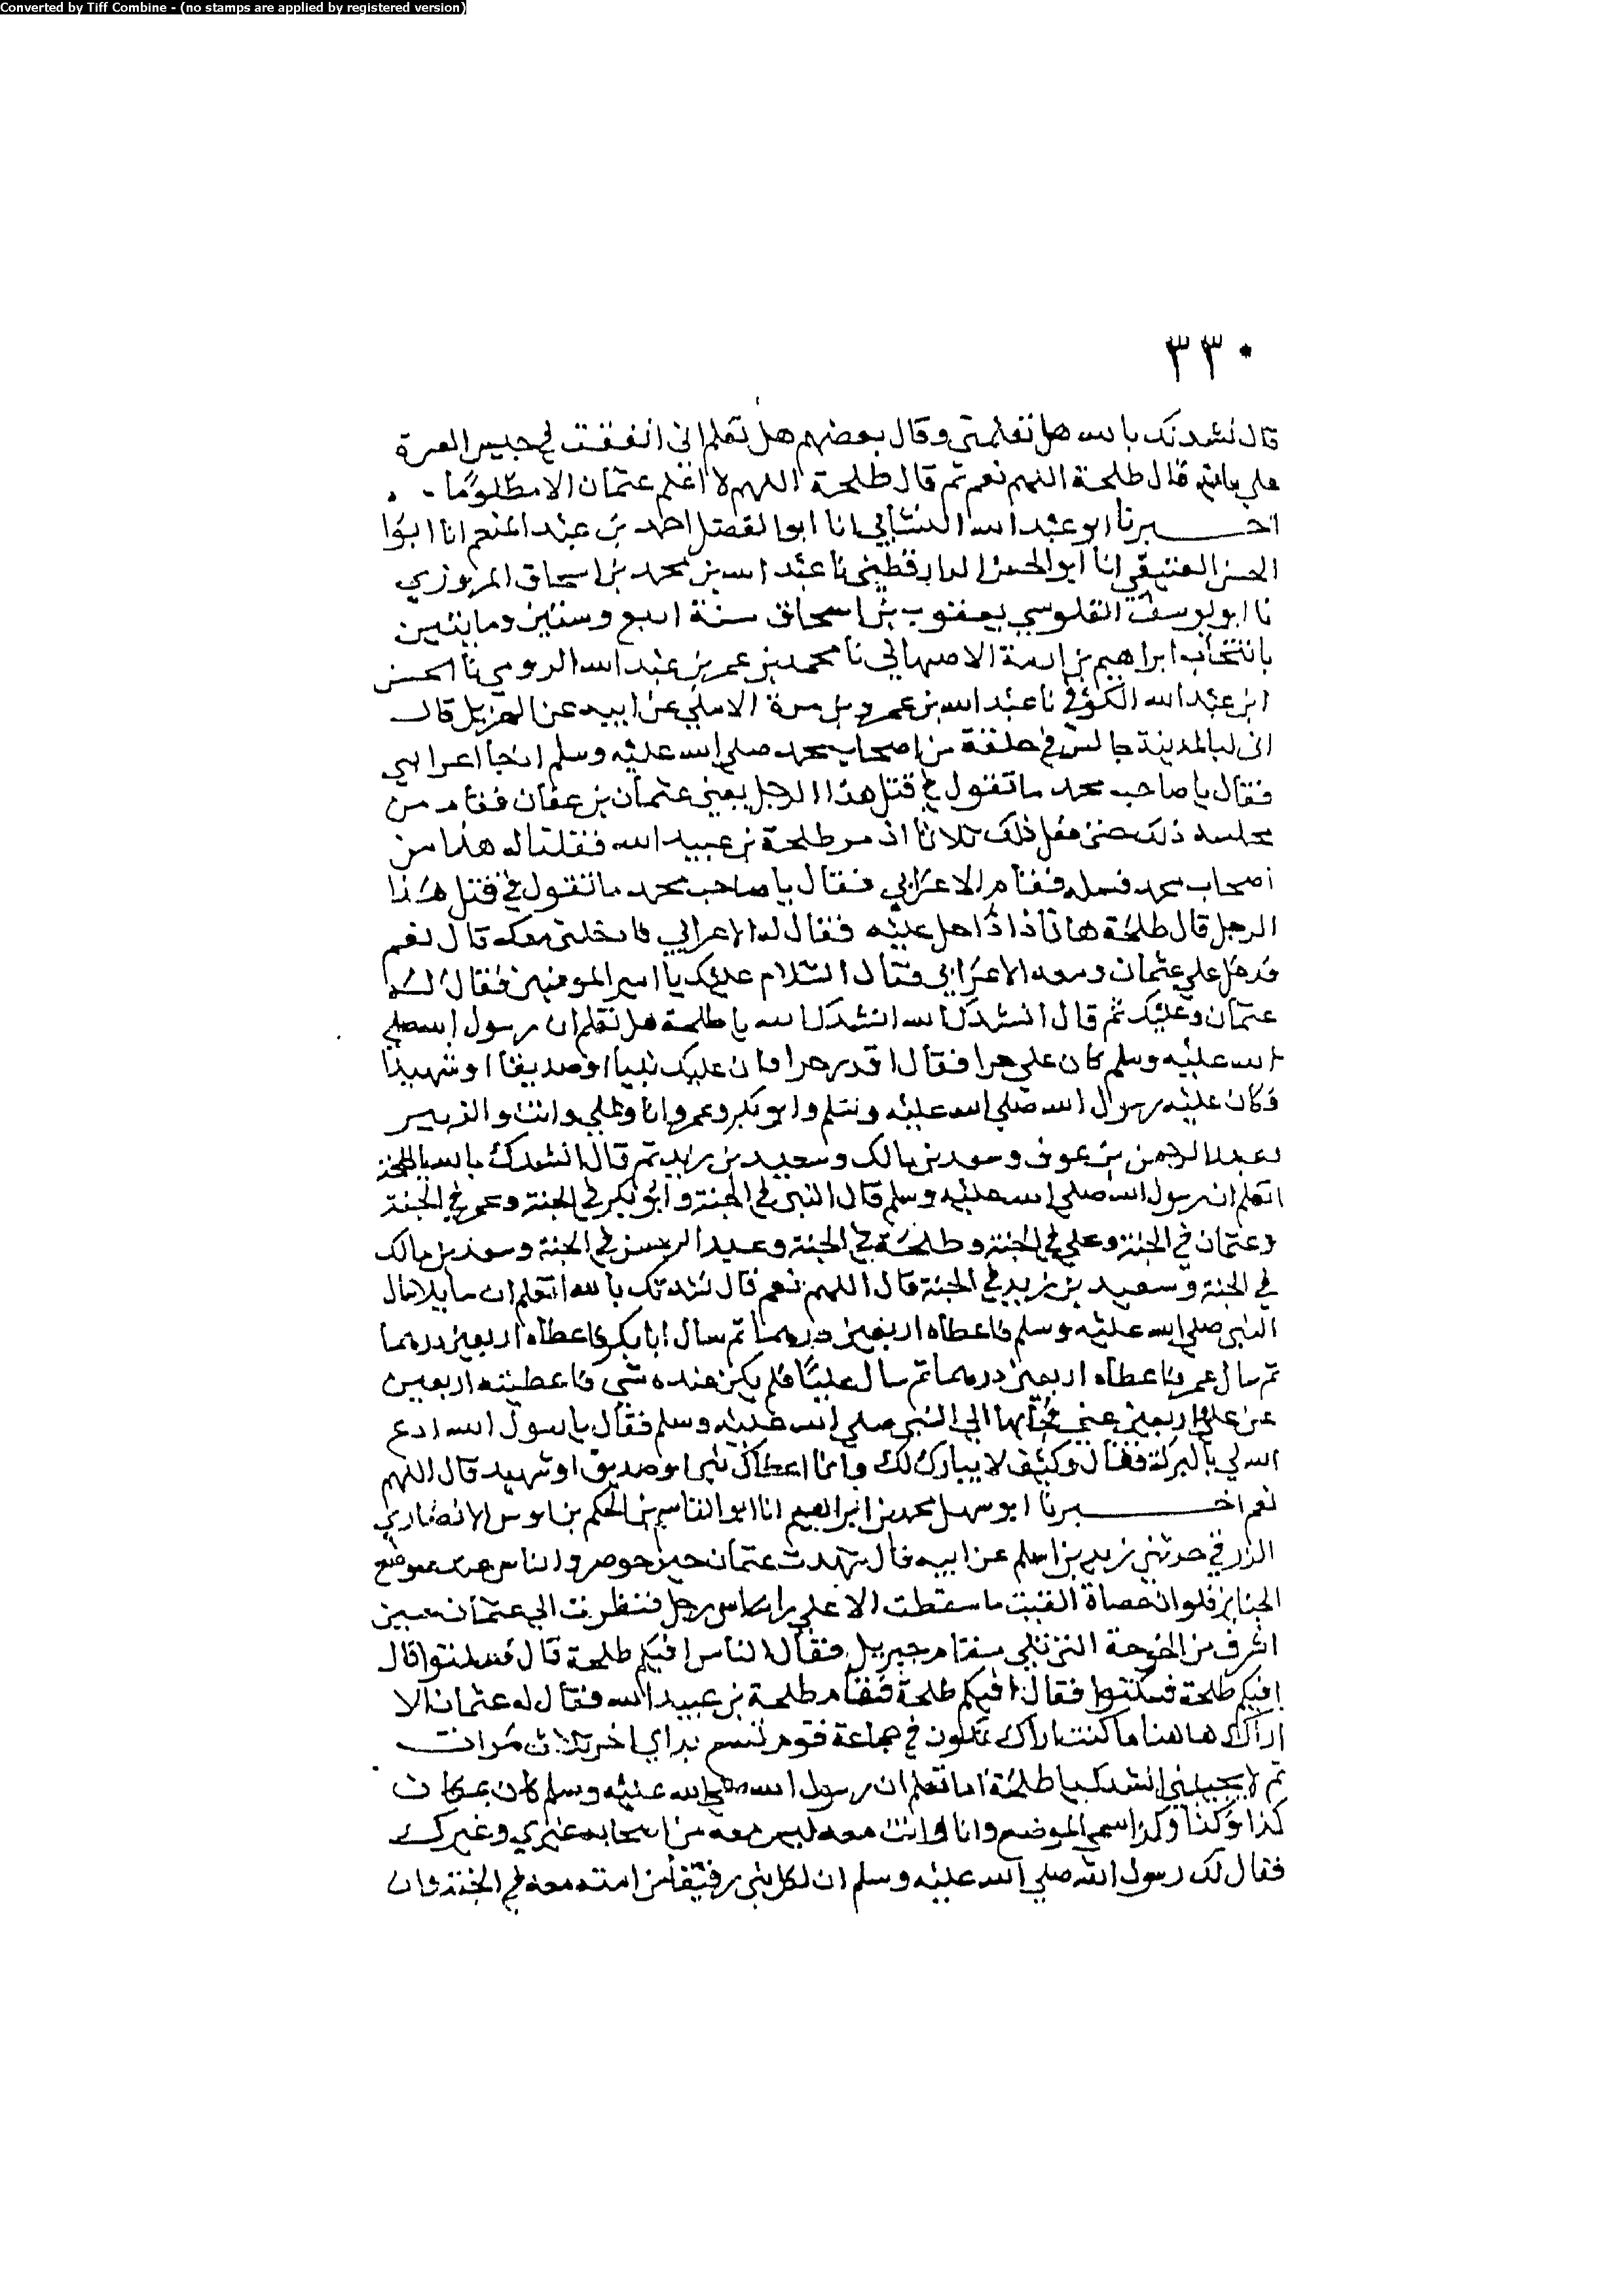 Converted by Tiff Combine - (no stamps are applied by registered version)
٣٣٠
قال نشدتك بالله هل تعلمني وقال بعضهم هل تعلم اني انفقت في جيش العسرة
علي مايتي قال طلحة اللهم نعم ثم قال طلحة اللهم لا اعلم عثمان الا مظلوما
اخبرنا ابو عبد الله انا ابو الفضل احمد بن عبد المنعم انا ابو
الحسن العتيقي انا ابو الحسن الدارقطني نا عبد الله بن محمد بن اسحاق المروزي
نا ابو يوسف القلوسي يعقوب بن اسحاق سنة اربع وستين ومايتين
بانتخاب ابراهيم بن ارمة الاصبهاني نا محمد بن عمر بن عبد الله الرومي نا الحسن
ابن عبد الله الكوفي نا عبد الله بن عمرو بن مرة عن ابيه عن الهزيل قال
اني لبالمدينة جالس في حلقة من اصحاب محمد صلي الله عليه وسلم اعرابي
فقال يا صاحب محمد ما تقول في قتل هذا الرجل يعني عثمان بن عفان فقام من
مجلسه ذلك حتى فعل ذلك ثلاثا اذ مر طلحة بن عبيد الله فقلنا له هذا من
اصحاب محمد فسله فقام الاعرابي فقال يا صاحب محمد ما تقول في قتل هذا
الرجل قال طلحة ها انا ذا داخل عليه فقال له الاعرابي معك قال نعم
فدخل علي عثمان ومعه الاعرابي فقال السلام عليك يا امير المومنين فقال له
عثمان وعليك ثم قال انشدك الله انشدك الله يا طلحة هل تعلم ان رسول الله صلي
الله عليه وسلم كان علي حرا فقال اقدر حرا فان عليك نبيا او صديقا او شهيدا
وكان عليه رسول الله صلي الله عليه وسلم وابو بكر وعمر وانا وعلي وانت والزبير
وعبد الرحمن بن عوف وسعد بن مالك وسعيد بن زيد ثم قال انشدك بالله يا طلحة
اتعلم ان رسول الله صلي الله عليه وسلم قال النبي في الجنة وابو بكر في الجنة وعمر في الجنة
وعثمان في الجنة وعلي في الجنة وطلحة في الجنة وعبد الرحمن في الجنة وسعد بن مالك
في الجنة وسعيد بن زيد في الجنة قال اللهم نعم قال نشدتك بالله اتعلم ان سايلا سال
النبي صلي الله عليه وسلم فاعطاه اربعين درهما ثم سال ابا بكر فاعطاه اربعين درهما
ثم سال عمر فاعطاه اربعين درهما ثم سال عليا فلم يكن عنده شي فاعطيته اربعين
عن علي واربعين عني فجا بها الي النبي صلي الله عليه وسلم فقال يا رسول الله ادع
الله لي بالبركة فقال وكيف لا يبارك لك وانما اعطاك نبي او صديق او شهيد قال اللهم
نعم اخبرنا ابو سهل محمد بن ابراهيم انا ابو القاسم بن الحكم بن اوس الانصاري
الزرقي حدثني زيد بن اسلم عن ابيه قال شهدت عثمان حين حوصر والناس عند موضع
الجنايز فلو ان حصاة القيت ما سقطت الا علي راس رجل فنظرت الي عثمان حين
اشرف من الخوخة التي تلي مقام جبريل فقال للناس افيكم طلحة قال فسكتوا قال
افيكم طلحة فسكتوا فقال افيكم طلحة فقام طلحة بن عبيد الله فقال له عثمان الا
اراك ها هنا ما كنت اراك تكون في جماعة قوم تسمع نداي اخر ثلاث مرات
ثم لا تجيبني انشدك يا طلحة اما تعلم ان رسول الله صلي الله عليه وسلم كان بمكان
كذا وكذا وكذا سمي الموضع وانا وانت معه ليس معه من اصحابه غيري وغيرك
فقال لك رسول الله صلي الله عليه وسلم ان لكل نبي رفيقا من امته معه في الجنة وان